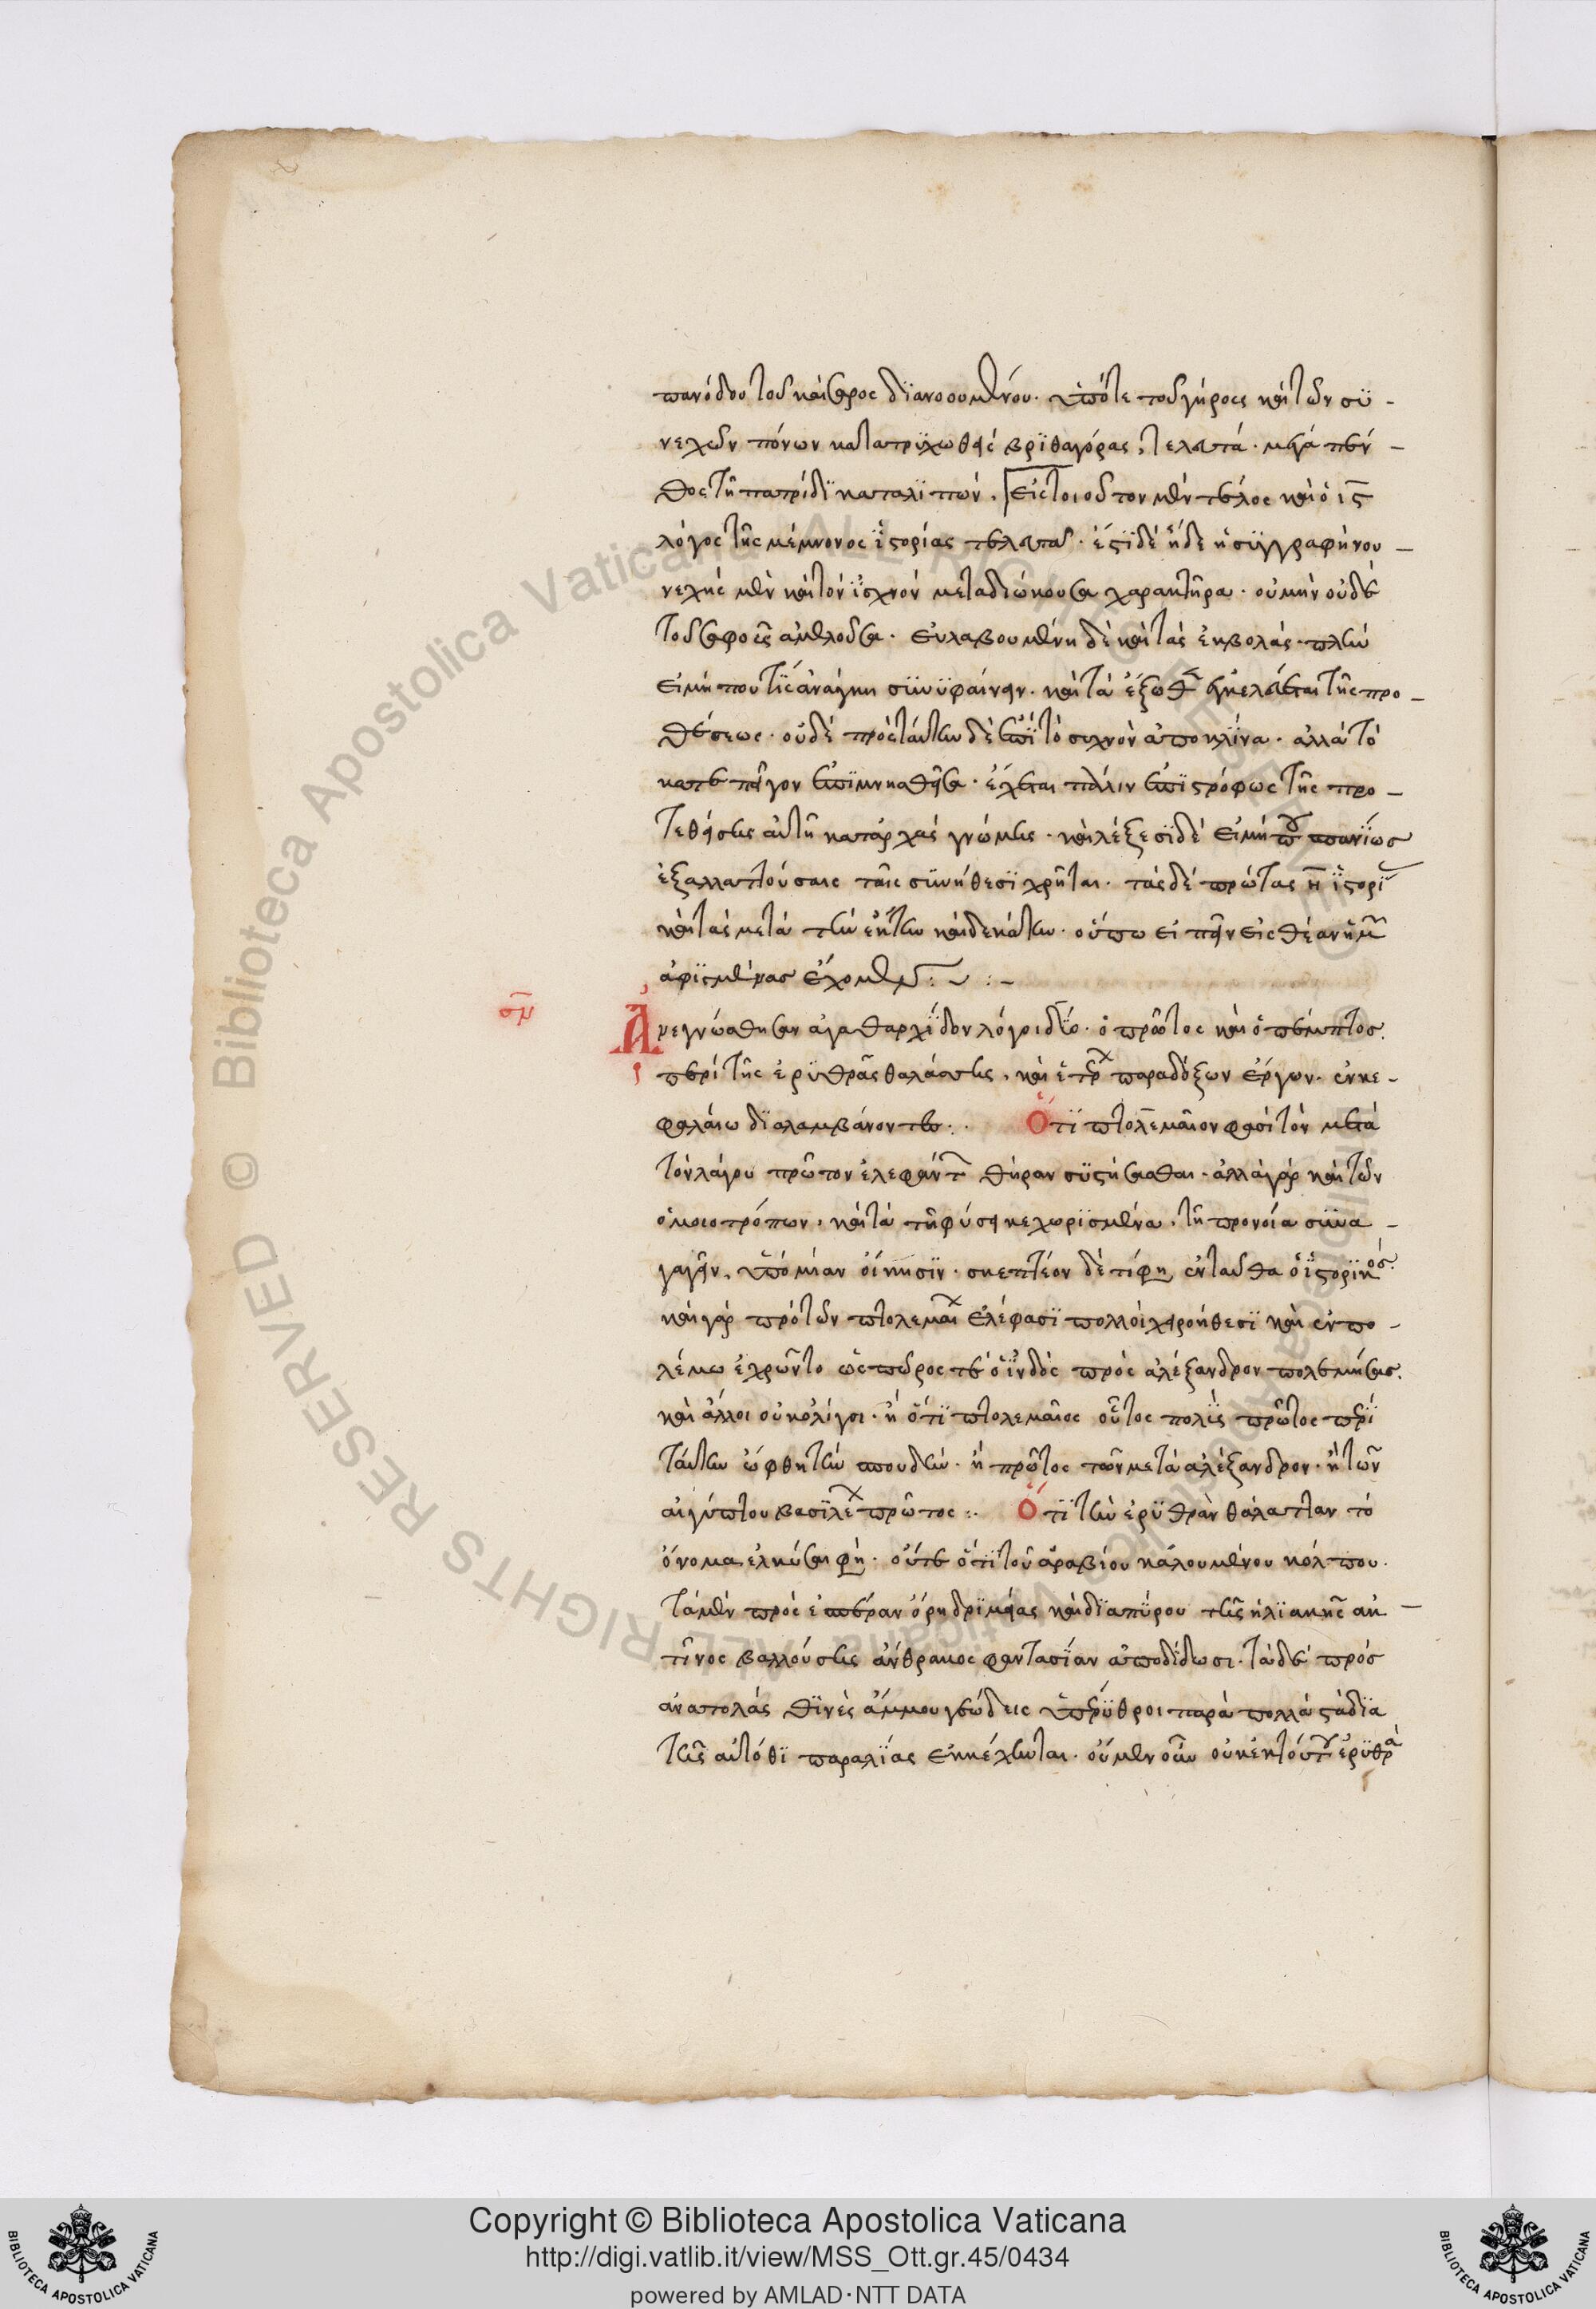 πανόδου τοῦ καίσαρος διανοουμένου. ὑπό τε τοῦ γήρως καὶ τῶν συ-
νεχῶν πόνων κατατρυχωθεὶς βριθαγόρας, τελευτᾷ. μέγα πέν-
θος τῇ πατρίδι καταλιπών. εἰς τοιοῦτον μὲν τέλος καὶ ὁ ις
λόγος τῆς μέμνονος ἱστορίας τελευτᾷ. ἔστι δὲ ἥδε ἡ συγγραφὴ νου-
νεχὴς μὲν καὶ τὸν ἰσχνὸν μεταδιώκουσα χαρακτῆρα. οὐ μὴν οὐδὲ
τοῦ σαφοῦς ἀμελοῦσα. εὐλαβουμένη δὲ καὶ τὰς ἐκβολάς. πλὴν
εἰ μή που τις ἀνάγκη συνυφαίνειν. καὶ τὰ ἔξωθεν ἐγκελεύεται τῆς προ-
θέσεως. οὐδὲ πρὸς ταύτην δὲ ἐπὶ τὸ συχνὸν ἀποκλίνα. ἀλλὰ τὸ
κατεπεῖγον ἐπιμνησθεῖσα. ἔχεται πάλιν ἐπιστρόφως τῆς προ-
τεθείσης αὐτῇ κατ' ἀρχὰς γνώμης. καὶ λέξεσι δὲ εἰ μή που σπανίως
ἐξαλλαττούσαις ταῖς συνήθεσι χρῆται. τὰς δὲ πρώτας η ἱστορί
καὶ τὰς μετὰ τὴν ἕκτην καὶ δεκάτην. οὔπω εἰπεῖν εἰς θέαν ἡμῶν
ἀφιγμένας ἔχομεν :~ :-
σν
Ἀνεγνώσθησαν ἀγαθαρχίδου λόγοι δύο. ὁ πρῶτος καὶ ὁ πέμπτος.
περὶ τῆς ἐρυθρᾶς θαλάσσης, καὶ ἑτέρων παραδόξων ἔργων. ἐν κε-
φαλαίῳ διαλαμβάνοντες. Ὅτι πτολεμαῖον φασὶ τὸν μετὰ
τὸν λάγου πρῶτον ἐλεφάντων θήραν συστήσασθαι. ἀλλὰ γὰρ καὶ τῶν
ὁμοιοτρόπων, καὶ τὰ τῇ φύσει κεχωρισμένα, τῇ προνοίᾳ συνα-
γαγεῖν, ὑπὸ μίαν οἴκησιν. σκεπτέον δὲ τί φη ἐνταῦθα ὁ ἱστορικός.
καὶ γὰρ πρὸ τῶν πτολεμαίων ἐλέφασι πολλοὶ χειροήθεσι καὶ ἐν πο-
λέμῳ ἐχρῶντο ὡς πῶρος τε ὁ ἰνδὸς πρὸς ἀλέξανδρον πολεμήσας.
καὶ ἄλλοι οὐκ ὀλίγοι. ἢ ὅτι πτολεμαῖος οὗτος πολὺς πρῶτος περὶ
ταύτην ὤφθη τὴν σπουδήν. ἢ πρῶτος τῶν μετὰ ἀλέξανδρον. ἢ τῶν
αἰγύπτου βασιλέων πρῶτος :. Ὅτι τὴν ἐρυθρὰν θάλατταν τὸ
ὄνομα ἑλκύσαι φη. οὔτε ὅτι τοῦ ἀραβίου καλουμένου κόλπου.
τὰ μὲν πρὸς ἑσπέραν ὄρη δριμείας καὶ διαπύρου τῆς ἡλιακῆς ἀκ-
τῖνος βαλλούσης ἄνθρακος φαντασίαν ἀποδίδωσι. τὰ δὲ πρὸς
ἀνατολὰς θῖνὲς ἄμμου γεώδεις ὑπέρυθροι παρὰ πολλὰ στάδια
τῆς αὐτόθι παραλίας ἐκκέχυνται. οὐ μὲν οὖν οὐκ ἐκ τούτου ἐρυθρὰ